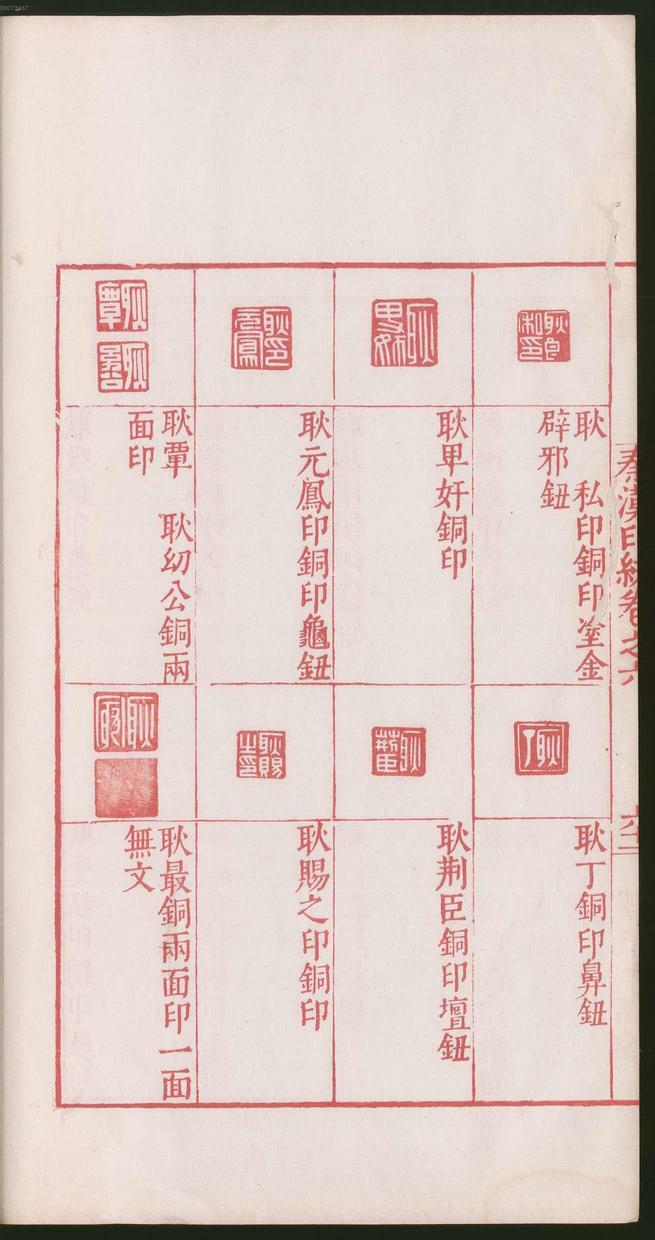 00073467
秦漢印統卷之六
六十二
耿　私印銅印塗金
辟邪鈕
耿甲奸銅印
耿元鳳印銅印龜鈕
耿覃　耿幼公銅兩
面印
耿丁銅印鼻鈕
耿荆臣銅印壇鈕
耿賜之印銅印
耿最銅兩面印一面
無文